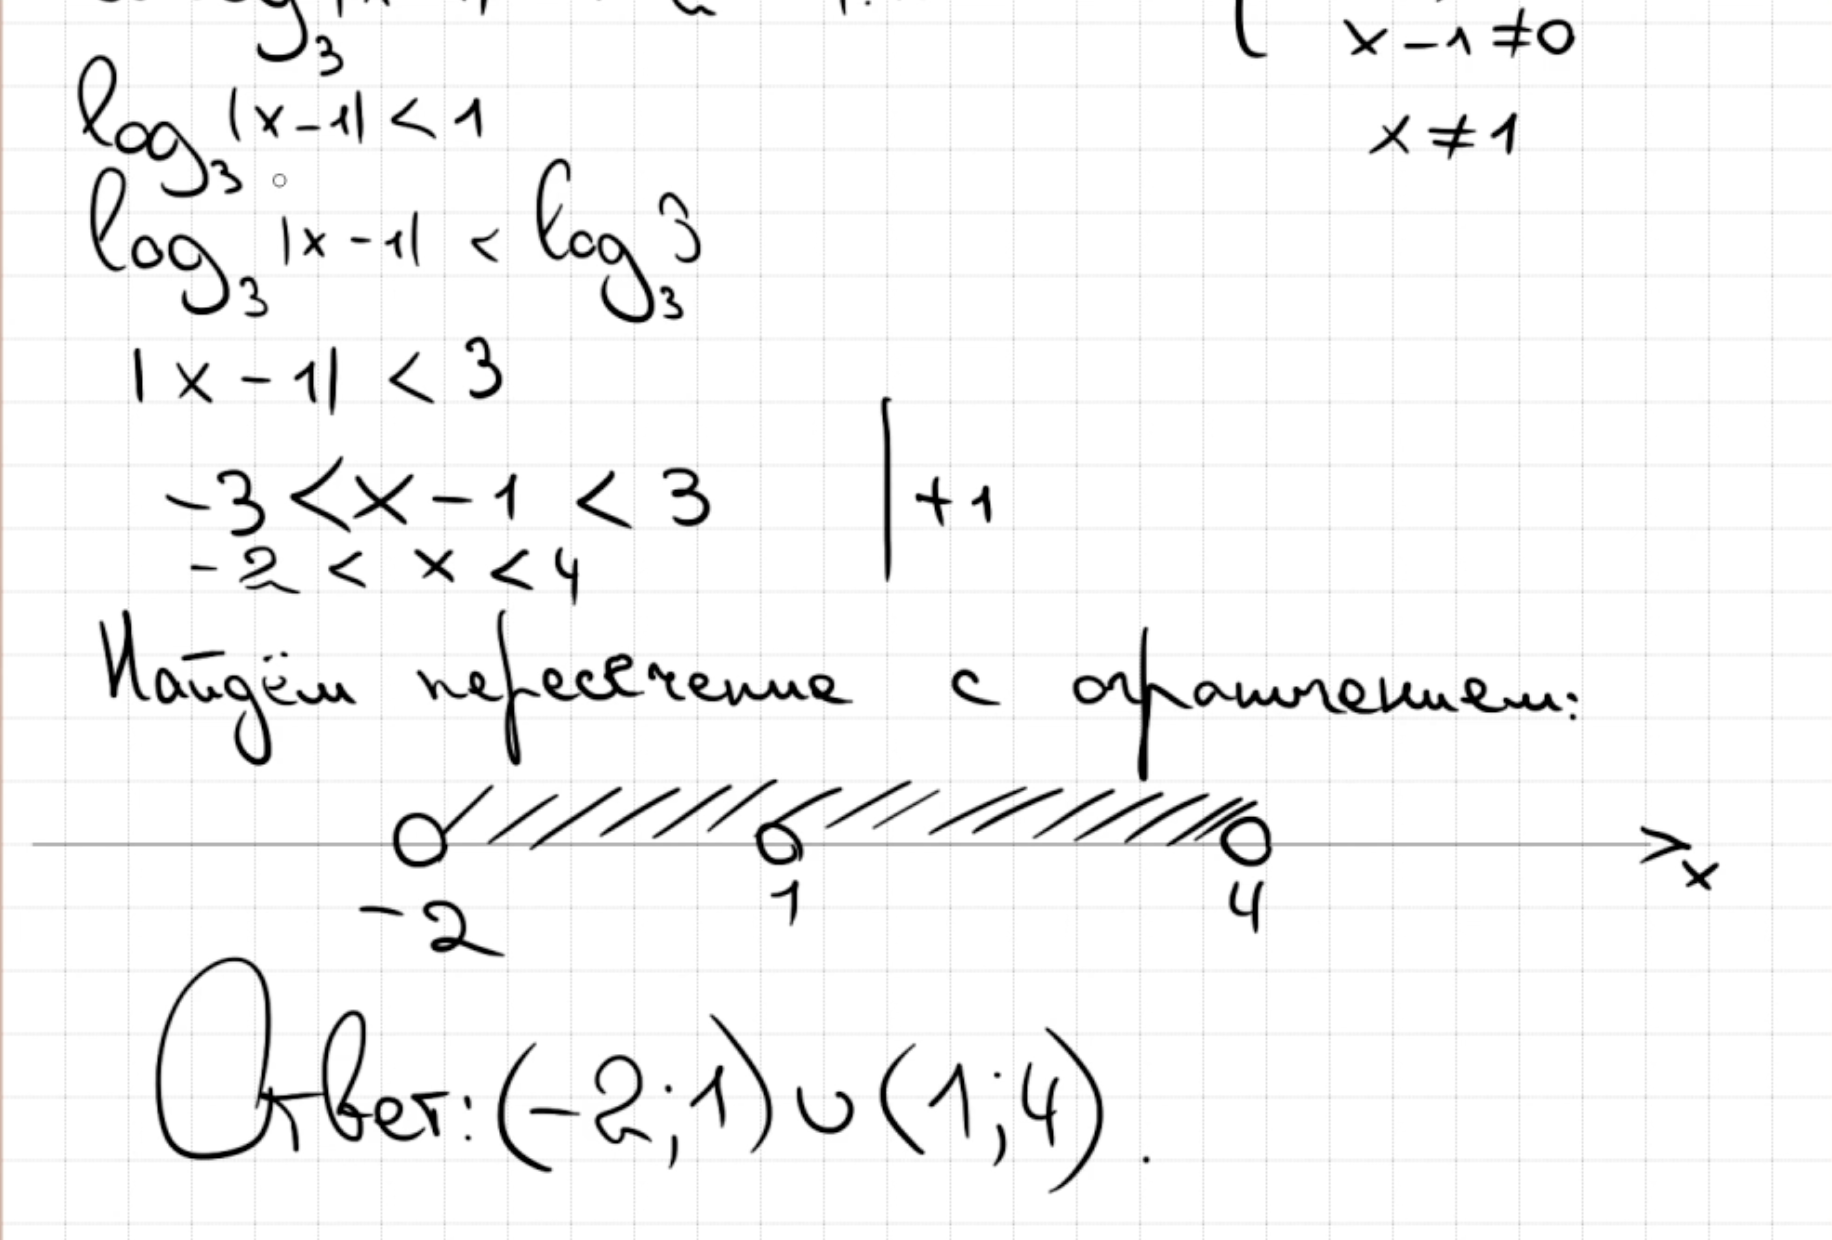 x-1≠0
x≠1
log₃|x-1|<1
log₃|x-1| < log₃3
|x-1| < 3
-3<x-1<3 |+1
-2<x<4
Найдём пересечение с ограничением:
-2 1 4 x
Ответ: (-2;1)∪(1;4).